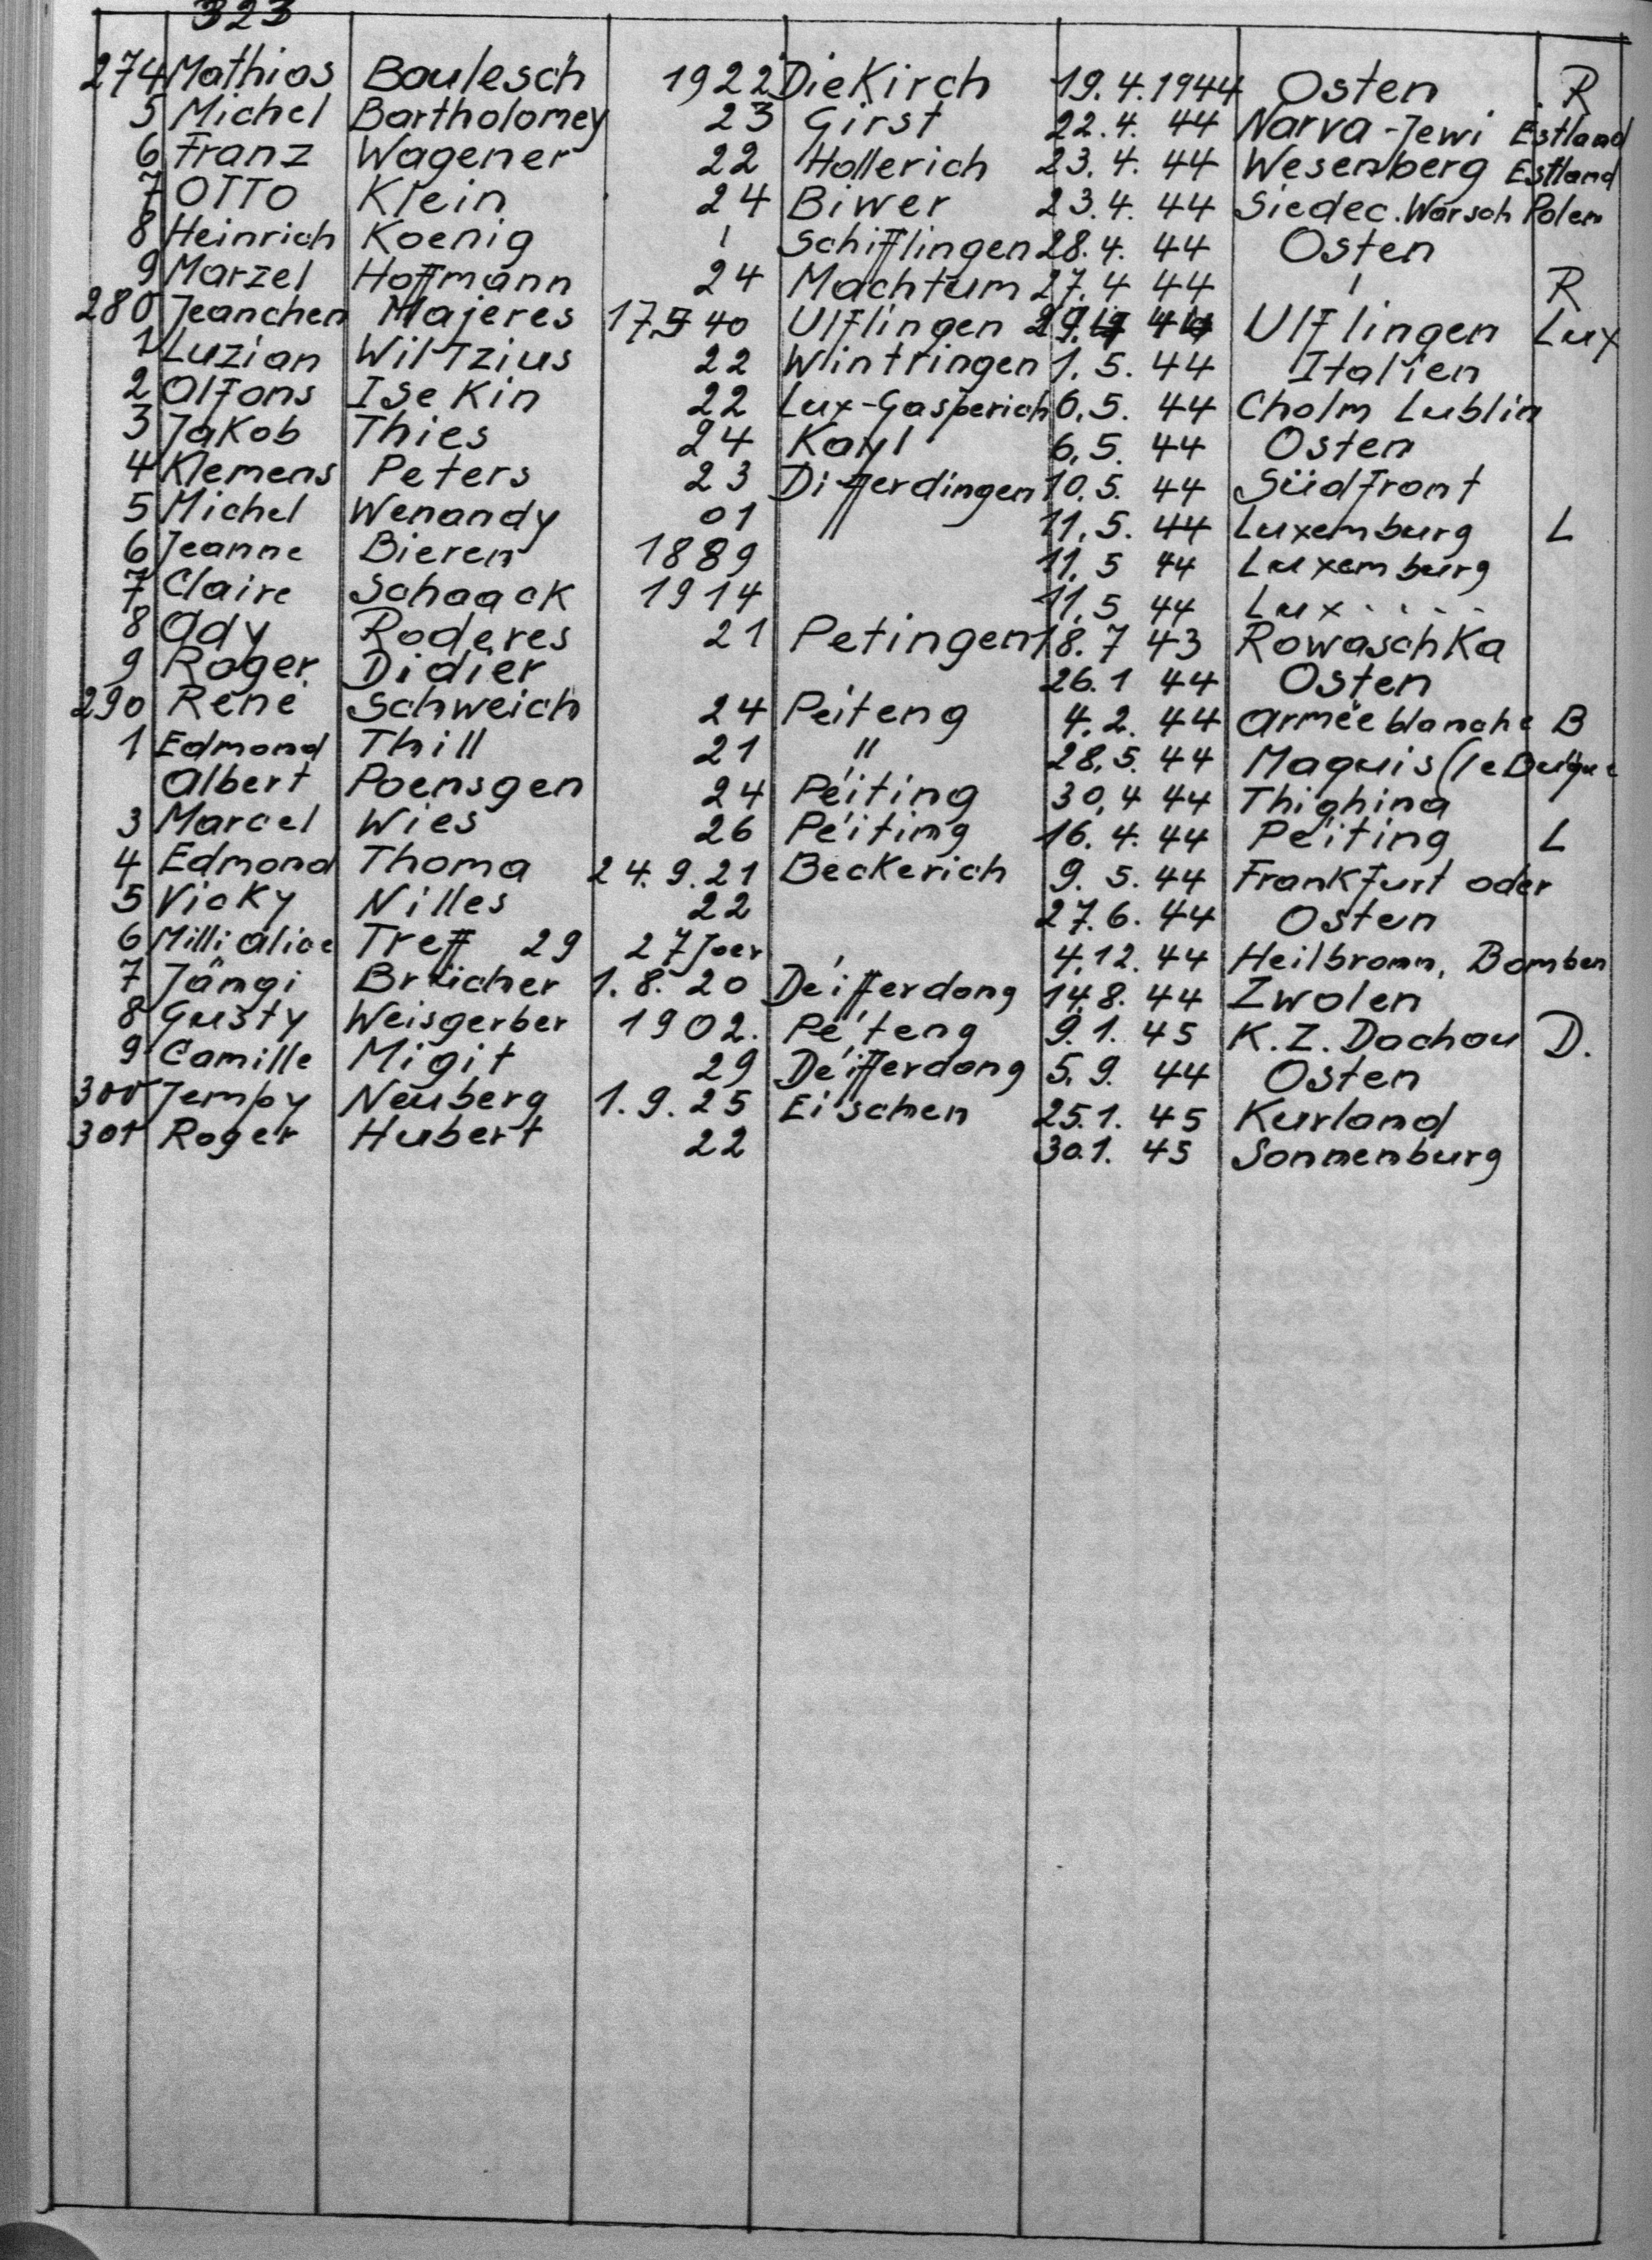 323
274 Mathias Baulesch 1922 Diekirch 19.4.1944 Osten R
5 Michel Bartholomey 23 Girst 22.4.44 Narva-Jewi Estland
6 Franz Wagener 22 Hollerich 23.4.44 Wesenberg Estland
7 OTTO Klein 24 Biwer 23.4.44 Siedec.Warsch Polen
8 Heinrich Koenig ' Schifflingen 28.4.44 Osten
9 Marzel Hoffmann 24 Machtum 27.4 44 ' R
280 Jeanchen Majeres 17.5 40 Ulflingen 29.4 44 Ulflingen Lux
1 Luzian Wiltzius 22 Wintringen 1.5.44 Italien
2 Alfons Isekin 22 Lux-Gasperich 6.5.44 Cholm Lublin
3 Jakob Thies 24 Kayl 6.5.44 Osten
4 Klemens Peters 23 Differdingen 10.5.44 Südfront
5 Michel Wenandy 01 " 11.5.44 Luxemburg L
6 Jeanne Bieren 1889 11.5 44 Luxemburg
7 Claire Schaack 1914 11.5 44 Lux....
8 Ady Roderes 21 Petingen 18.7 43 Rowaschka
9 Roger Didier 26.1 44 Osten
290 René Schweich 24 Péiteng 4.2.44 Armée blanche B
1 Edmond Thill 21 " 28.5.44 Maquis
Albert Poensgen 24 Péiting 30.4 44 Thighina
3 Marcel Wies 26 Péiting 16.4.44 Péiting L
4 Edmond Thoma 24.9.21 Beckerich 9.5.44 Frankfurt oder
5 Vicky Nilles 22 27.6.44 Osten
6 Milli Alice Treff 29 27 Joer 4.12.44 Heilbronn, Bomben
7 Jängi Brücher 1.8.20 Déifferdang 14.8.44 Zwolen
8 Gusty Weisgerber 1902. Péiteng 9.1.45 K.Z. Dachau D.
9 Camille Migit 29 Déifferdang 5.9.44 Osten
300 Jempy Neuberg 1.9.25 Eischen 25.1.45 Kurland
301 Roger Hubert 22 30.1.45 Sonnenburg